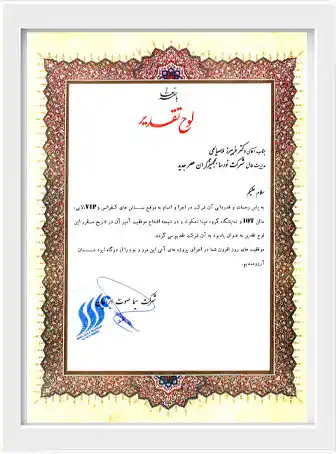 لوح تقدیر
جناب آقای دکتر فریبرز
مدیریت عامل شرکت نورسا عصر جدید
سلام علیکم
به پاس زحمات و قدردانی آن شرکت در اجرا و اتمام به موقع سالن های کنفرانس و VIP،
های IOT و نمایشگاه، گروه مپنا و در نتیجه افتتاح موفقیت آمیز آن در تاریخ مقرر این
لوح تقدیر به عنوان یادبود به آن شرکت تقدیم می گردد.
موفقیت های روز افزون شما در اجرای پروژه های آتی این مرز و بوم را از درگاه ایزد منان
آرزومندیم.
شرکت سیما صوت